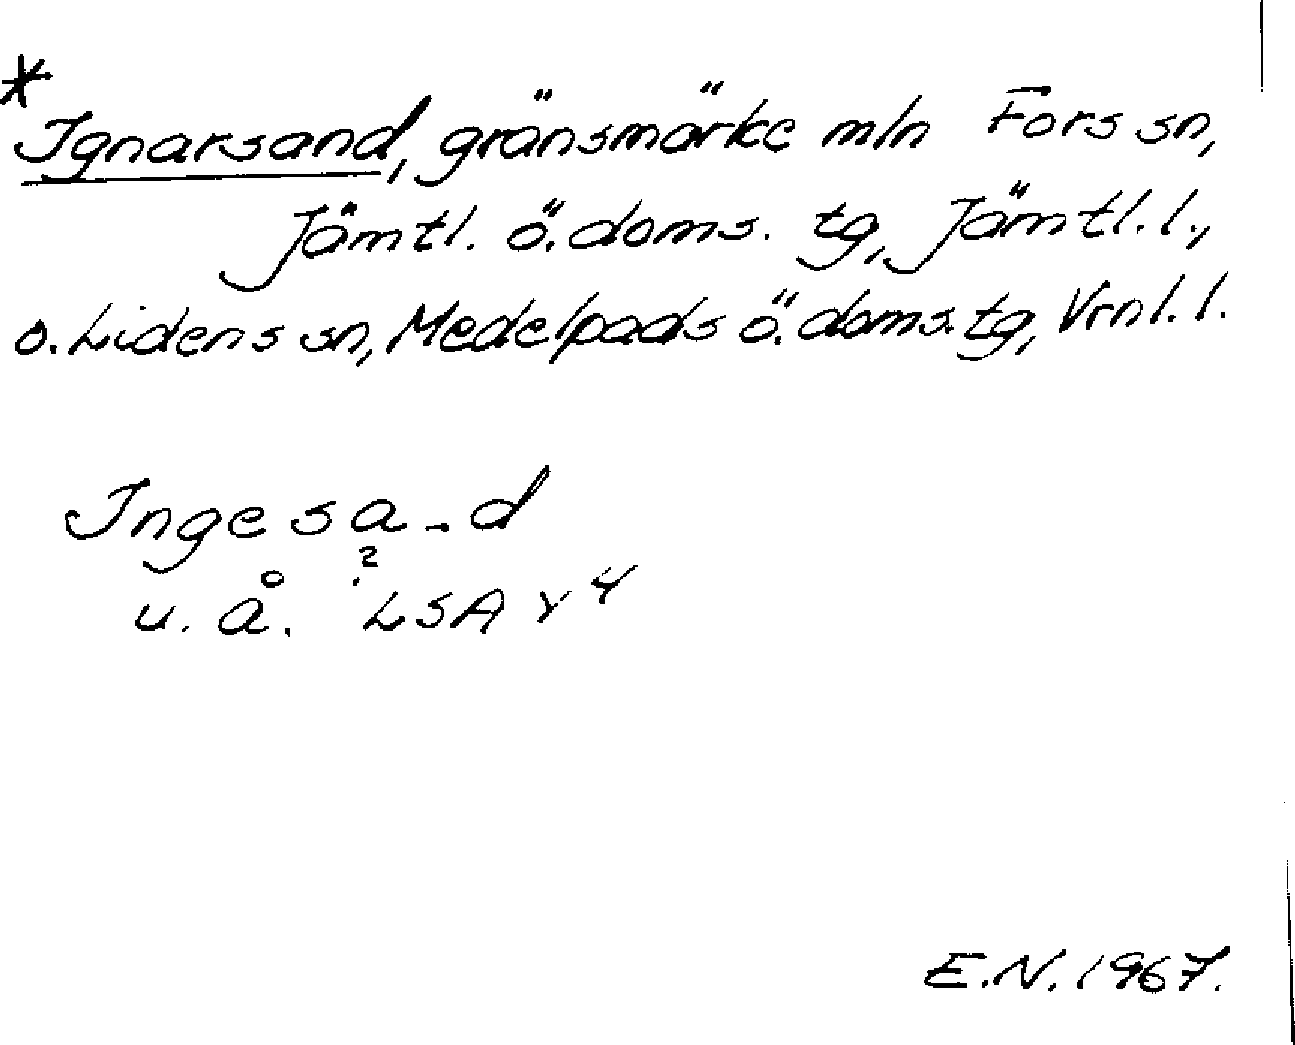 *
Ignarsand, gränsmärke mln Fors sn,
Jämtl. ö. doms. tg, Jämtl. l.,
o. Lidens sn, Medelpads ö. doms. tg, Vrnl. l.
Inge sa - d
u. å. ? LSA Y 4
E.N. 1967.